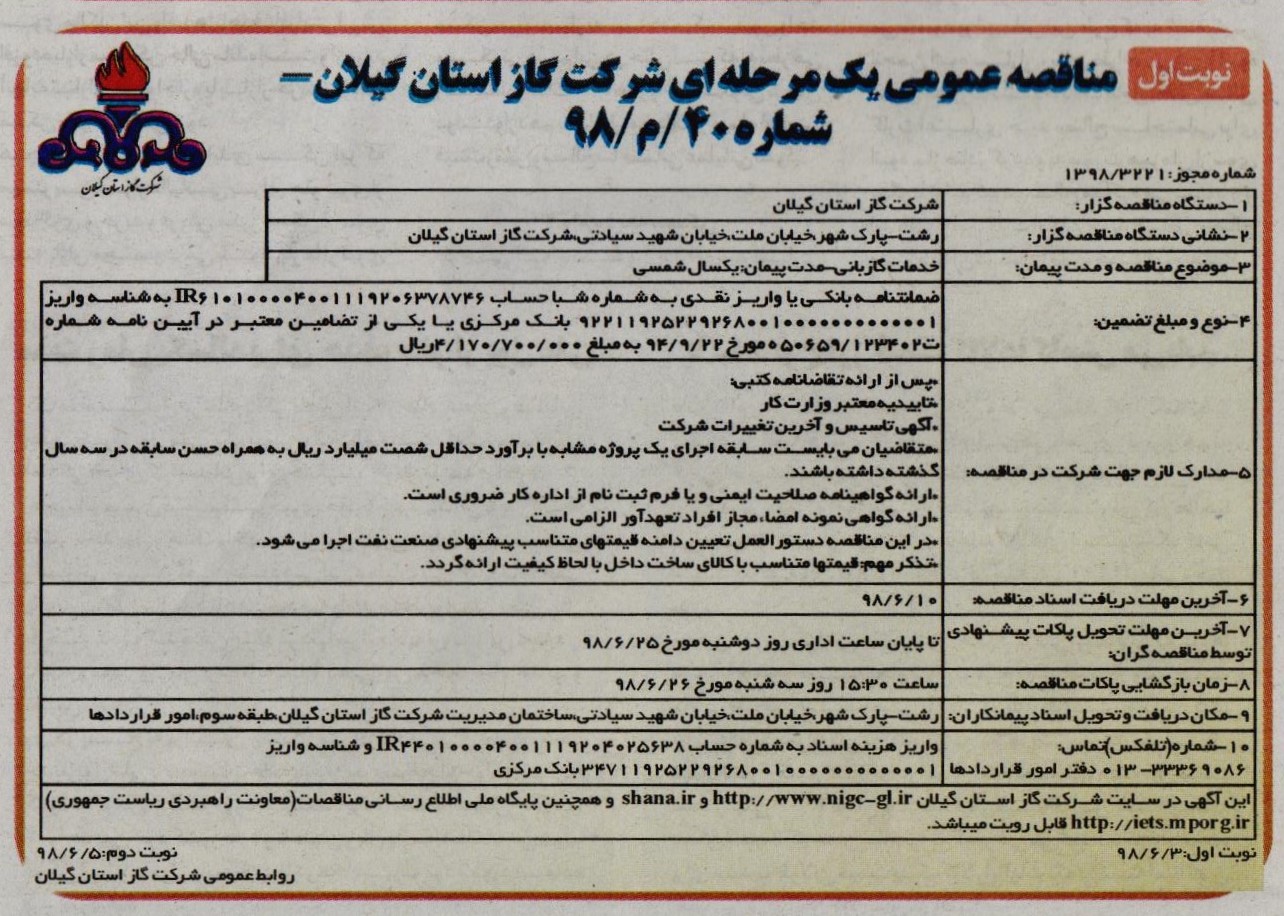 نوبت اول
مناقصه عمومی یک مرحله ای شرکت گاز استان گیلان-
شماره ۴۰/م/۹۸
شرکت گاز استان گیلان
شماره مجوز: ۱۳۹۸/۳۲۲۱
۱-دستگاه مناقصه گزار: شرکت گاز استان گیلان
۲-نشانی دستگاه مناقصه گزار: رشت-پارک شهر،خیابان ملت،خیابان شهید سیادتی،شرکت گاز استان گیلان
۳-موضوع مناقصه و مدت پیمان: خدمات گازبانی-مدت پیمان:یکسال شمسی
۴-نوع و مبلغ تضمین: ضمانتنامه بانکی یا واریز نقدی به شماره شبا حساب IR۶۱۰۱۰۰۰۰۴۰۰۱۱۱۹۲۰۶۳۷۸۷۴۶ به شناسه واریز
۹۲۲۱۱۹۲۵۲۲۹۲۶۸۰۰۱۰۰۰۰۰۰۰۰۰۰۰۰۱ بانک مرکزی یا یکی از تضامین معتبر در آیین نامه شماره
۱۲۳۴۰۲/ت۵۰۶۵۹ه مورخ ۹۴/۹/۲۲ به مبلغ ۴/۱۷۰/۷۰۰/۰۰۰ریال
۵-مدارک لازم جهت شرکت در مناقصه:
•پس از ارائه تقاضانامه کتبی:
•تاییدیه معتبر وزارت کار
•آگهی تاسیس و آخرین تغییرات شرکت
•متقاضیان می بایست سابقه اجرای یک پروژه مشابه با برآورد حداقل شصت میلیارد ریال به همراه حسن سابقه در سه سال
گذشته داشته باشند.
•ارائه گواهینامه صلاحیت ایمنی و یا فرم ثبت نام از اداره کار ضروری است.
•ارائه گواهی نمونه امضاء مجاز افراد تعهدآور الزامی است.
•در این مناقصه دستورالعمل تعیین دامنه قیمتهای متناسب پیشنهادی صنعت نفت اجرا می شود.
•تذکر مهم: قیمتها متناسب با کالای ساخت داخل با لحاظ کیفیت ارائه گردد.
۶-آخرین مهلت دریافت اسناد مناقصه: ۹۸/۶/۱۰
۷-آخرین مهلت تحویل پاکات پیشنهادی
توسط مناقصه گران: تا پایان ساعت اداری روز دوشنبه مورخ ۹۸/۶/۲۵
۸-زمان بازگشایی پاکات مناقصه: ساعت ۱۵:۳۰ روز سه شنبه مورخ ۹۸/۶/۲۶
۹-مکان دریافت و تحویل اسناد پیمانکاران: رشت-پارک شهر،خیابان ملت،خیابان شهید سیادتی،ساختمان مدیریت شرکت گاز استان گیلان،طبقه سوم،امور قراردادها
۱۰-شماره(تلفکس)تماس: واریز هزینه اسناد به شماره حساب IR۴۴۰۱۰۰۰۰۴۰۰۱۱۱۹۲۰۴۰۲۵۶۳۸ و شناسه واریز
۳۳۳۶۹۰۸۶-۰۱۳ دفتر امور قراردادها ۳۴۷۱۱۹۲۵۲۲۹۲۶۸۰۰۱۰۰۰۰۰۰۰۰۰۰۰۰۱بانک مرکزی
این آگهی در سایت شرکت گاز استان گیلان http://www.nigc-gl.ir و shana.ir و همچنین پایگاه ملی اطلاع رسانی مناقصات(معاونت راهبردی ریاست جمهوری)
http://iets.mporg.ir قابل رویت میباشد.
نوبت اول:۹۸/۶/۳
نوبت دوم:۹۸/۶/۵
روابط عمومی شرکت گاز استان گیلان